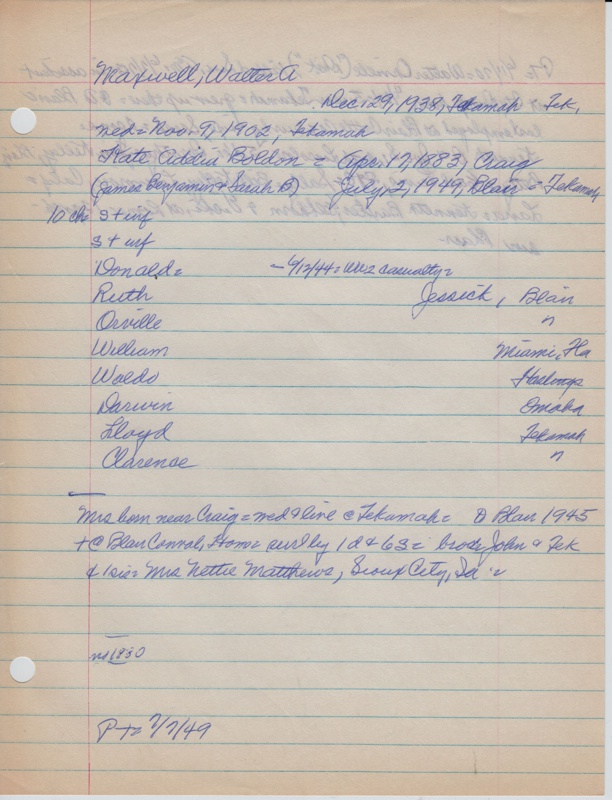 Maxwell, Walter A
Dec. 29, 1938, Tekamah Tek,
med = Nov. 9, 1902 Tekamah
Kate Addia Boldon = Apr. 17, 1883, Craig
(James Benjamin & Sarah B) July, 2, 1949, Blair = Tekamah
10 ch S + inf
S + inf
Donald = - 6/12/44 = WW2 casualty =
Ruth Jessick, Blair
Orville "
William Miami, Fla
Waldo Hastings
Darwin Omaha
Lloyd Tekamah
Clarence "
Mrs born near Craig = med & live @ Tekamah = Blair 1945
+ @ Blair Home = surv by 1 d & 6 S = bro = John & Tek
& 1 sis = Mrs Nettie Matthews, Sioux City, Ia =
P T = 7/7/49